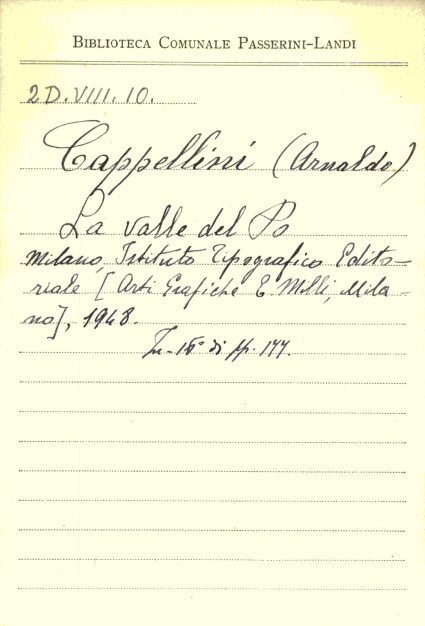 BIBLIOTECA COMUNALE PASSERINI-LANDI
2D.VIII.10.
Cappellini (Arnaldo)
La valle del Po
Milano, Istituto Tipografico Edito-
riale [Arti Grafiche E. Milli, Mila-
no], 1948.
In-16° di pp. 177.